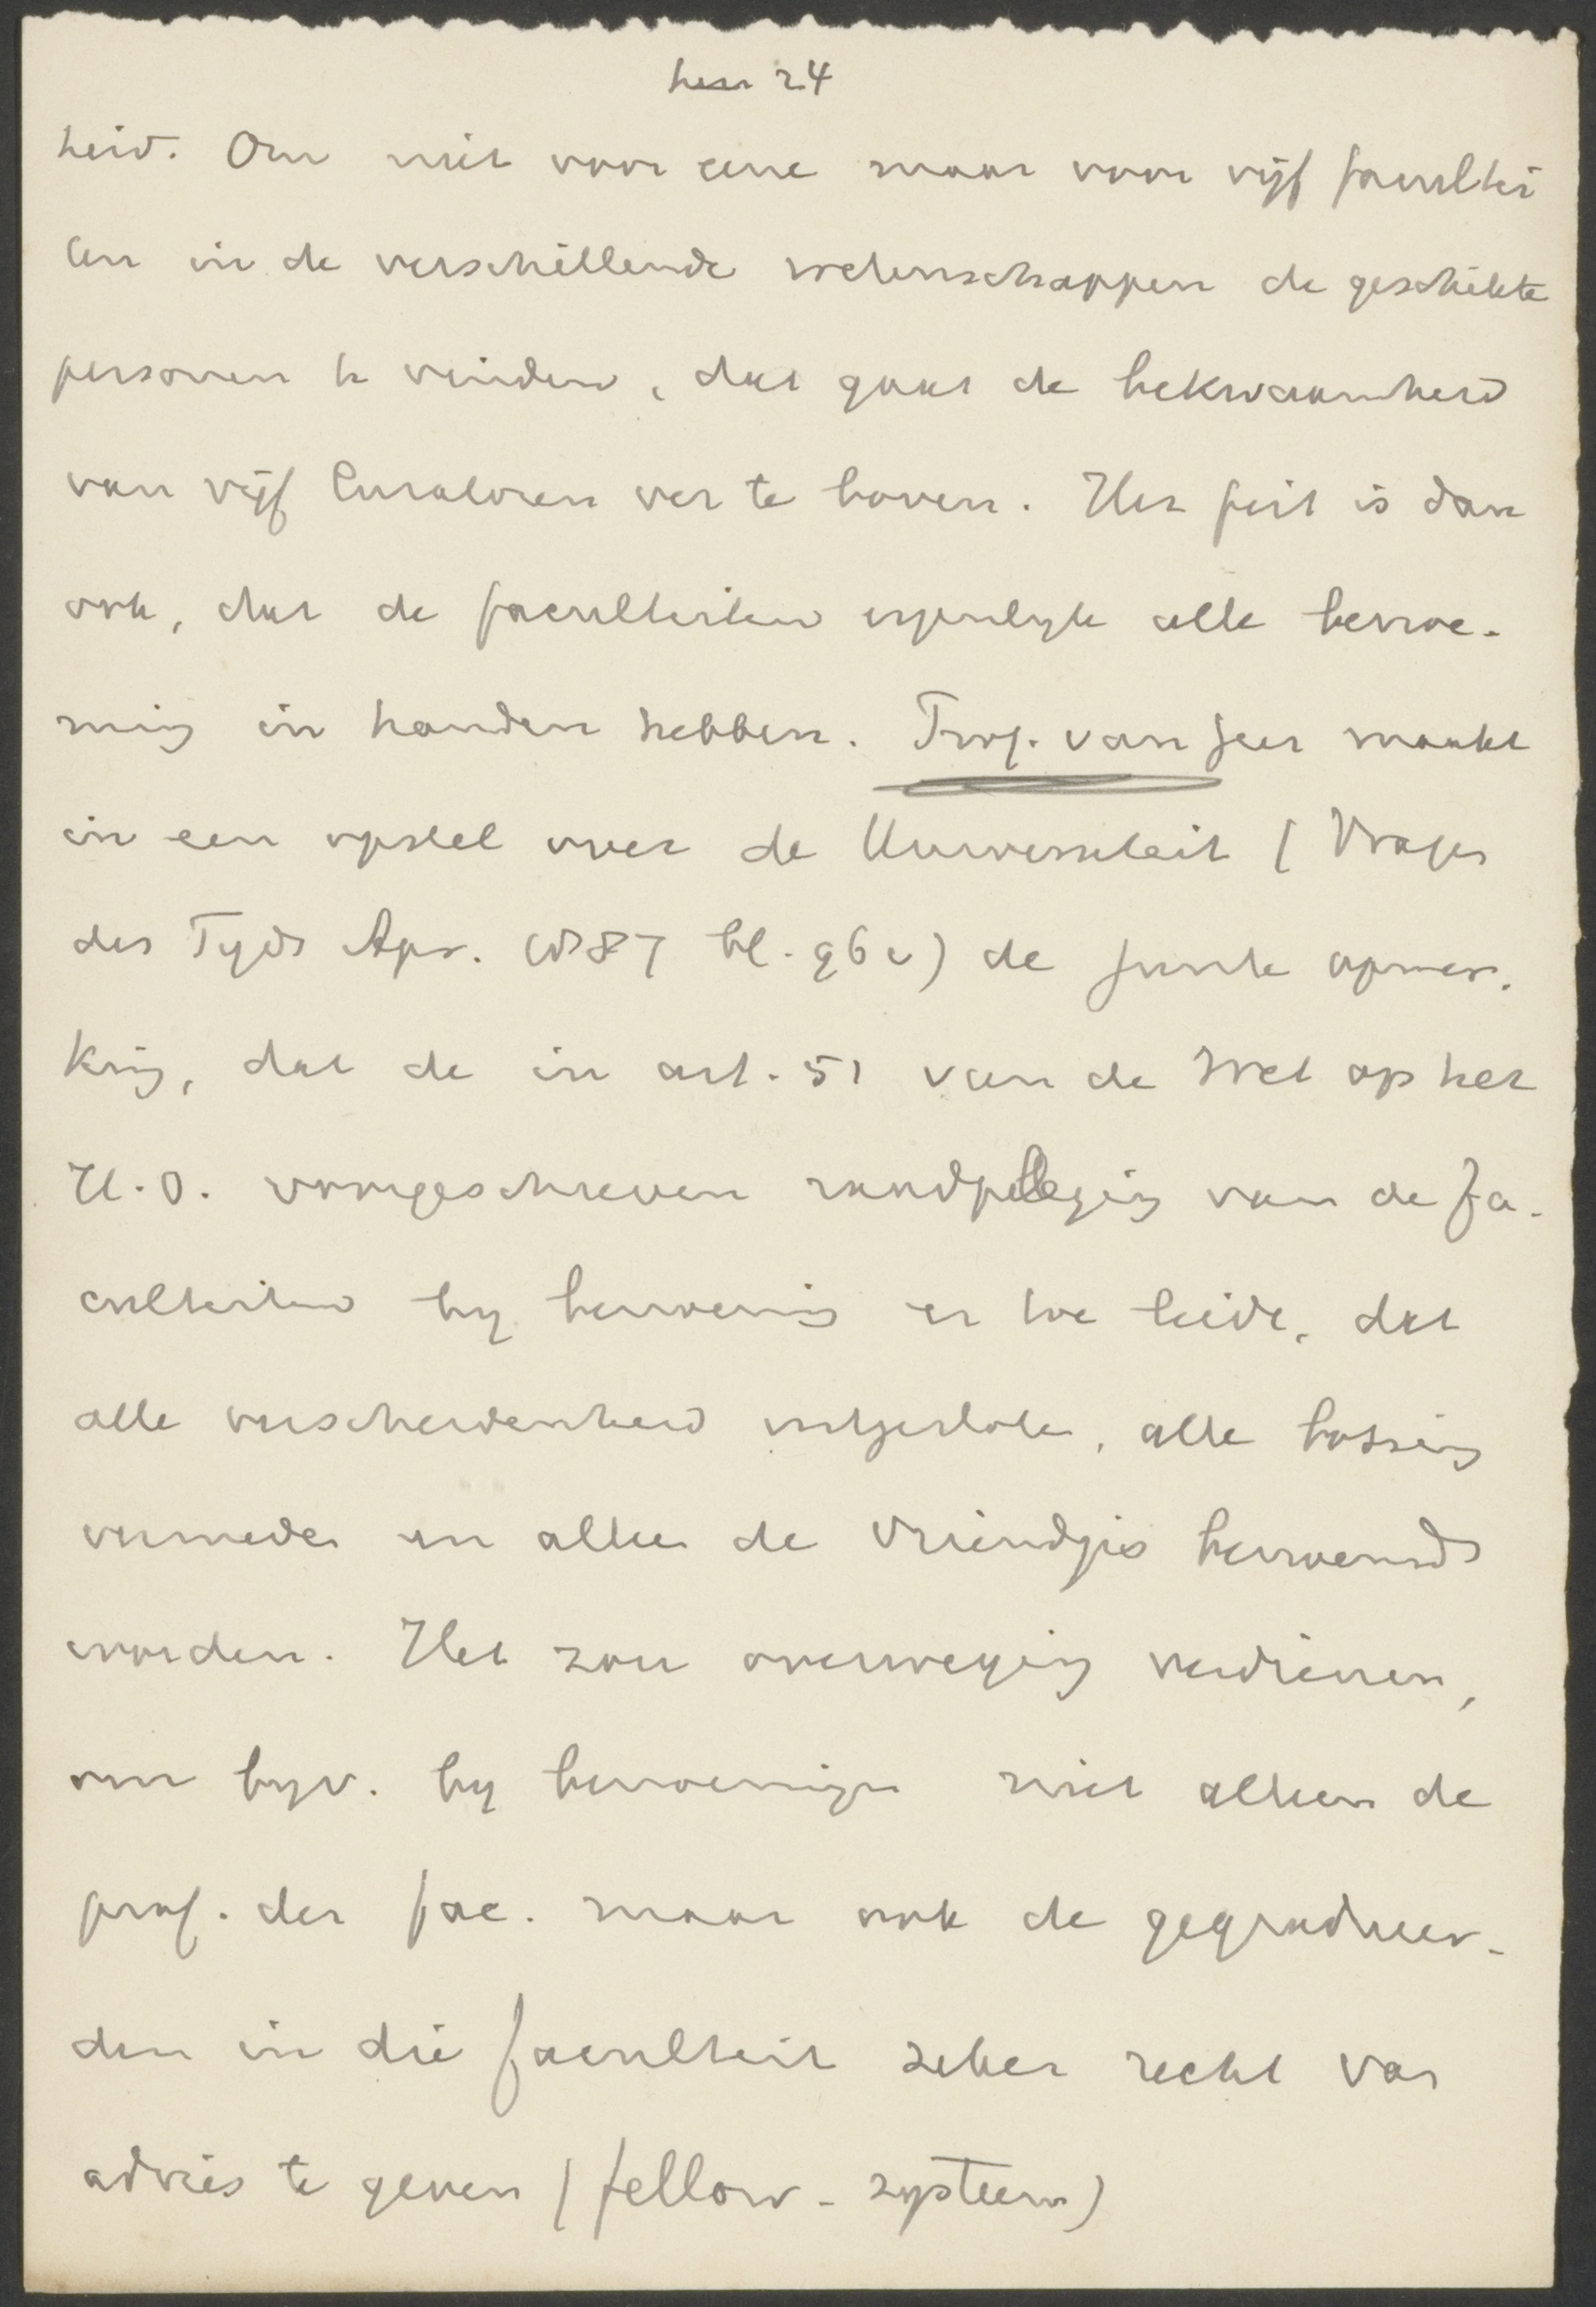 24
heid. Om niet voor eene maar voor vijf facultei
ten in de verschillende wetenschappen de geschikte
personen te vinden, dat gaat de bekwaamheid
van vijf Curatoren ver te boven. Het feit is dan
ook, dat de faculteiten eigenlijk alle benoe-
ming in handen hebben. Prof. van Geer maakt
in een opstel over de Universiteit (Vragen
des Tyds Apr. 1887 bl. 96 v) de juiste opmer-
king, dat de in art. 51 van de Wet op het
H.O. voorgeschreven raadpleging van de fa-
culteiten by benoeming er toe leidt, dat
alle verscheidenheid uitgesloten, alle botsing
vermeden en alleen de vriendjes benoemd
worden. Het zou overweging verdienen,
om byv. by benoemingen niet alleen de
prof. der fac. maar ook de gegradueer-
den in die faculteit zeker recht van
advies te geven (fellow-systeem)